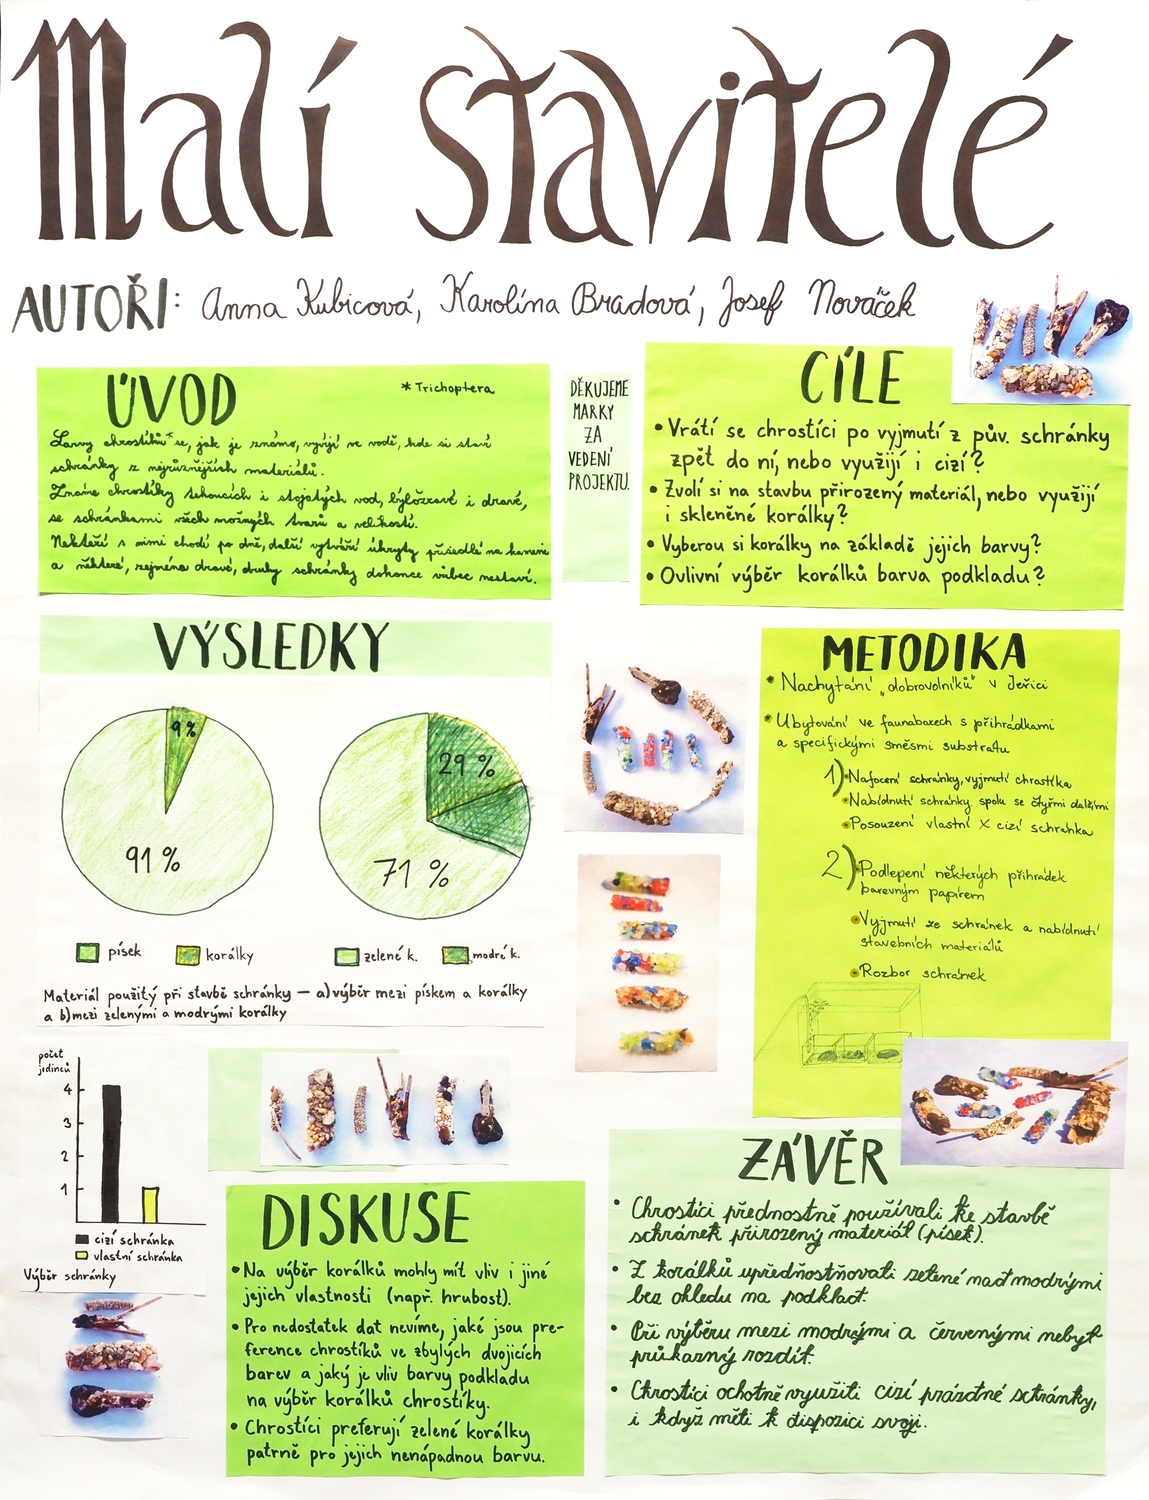 Malí stavitelé
AUTOŘI: Anna Kubicová, Karolína Bradová, Josef Nováček
ÚVOD
* Trichoptera
Larvy chrostíků* se, jak je známo, vyvíjí ve vodě, kde si staví
schránky z nejrůznějších materiálů.
Známe chrostíky tekoucích i stojatých vod, býložravé i dravé,
se schránkami všech možných tvarů a velikostí.
Někteří s nimi chodí po dně, další vytváří úkryty přisedlé na kameni
a některé, zejména dravé, druhy schránky dokonce vůbec nestaví.
DĚKUJEME
MARKY
ZA
VEDENÍ
PROJEKTU.
CÍLE
• Vrátí se chrostíci po vyjmutí z pův. schránky
zpět do ní, nebo využijí i cizí?
• Zvolí si na stavbu přirozený materiál, nebo využijí
i skleněné korálky?
• Vyberou si korálky na základě jejich barvy?
• Ovlivní výběr korálků barva podkladu?
VÝSLEDKY
9%
91 %
29 %
71 %
písek
korálky
zelené k.
modré k.
Materiál použitý při stavbě schránky — a) výběr mezi pískem a korálky
a b) mezi zelenými a modrými korálky
METODIKA
• Nachytání „dobrovolníků" v Jeřici
• Ubytování ve faunaboxech s přihrádkami
a specifickými směsmi substrátu
1) • Nafocení schránky, vyjmutí chrostíka
• Nabídnutí schránky spolu se čtyřmi dalšími
• Posouzení vlastní X cizí schránka
2) • Podlepení některých přihrádek
barevným papírem
• Vyjmutí ze schránek a nabídnutí
stavebních materiálů
• Rozbor schránek
počet
jedinců
4
3
2
1
cizí schránka
vlastní schránka
Výběr schránky
DISKUSE
• Na výběr korálků mohly mít vliv i jiné
jejich vlastnosti (např. hrubost).
• Pro nedostatek dat nevíme, jaké jsou pre-
ference chrostíků ve zbylých dvojicích
barev a jaký je vliv barvy podkladu
na výběr korálků chrostíky.
• Chrostíci preferují zelené korálky
patrně pro jejich nenápadnou barvu.
ZÁVĚR
• Chrostíci přednostně používali ke stavbě
schránek přirozený materiál (písek).
• Z korálků upřednostňovali zelené nad modrými
bez ohledu na podklad.
• Při výběru mezi modrými a červenými nebyl
průkazný rozdíl.
• Chrostíci ochotně využili cizí prázdné schránky,
i když měli k dispozici svoji.